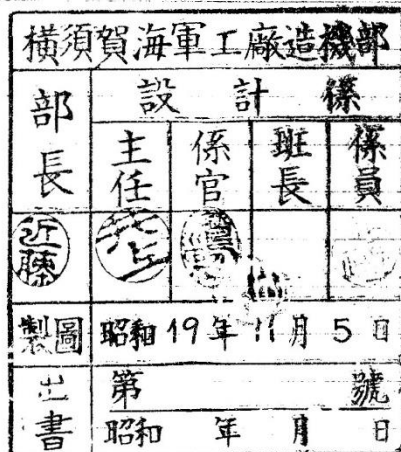 横須賀海軍工廠造機部
部長
設計係
主任
係官
班長
係員
近藤
製圖 昭和19年11月5日
出書
第 號
昭和 年 月 日